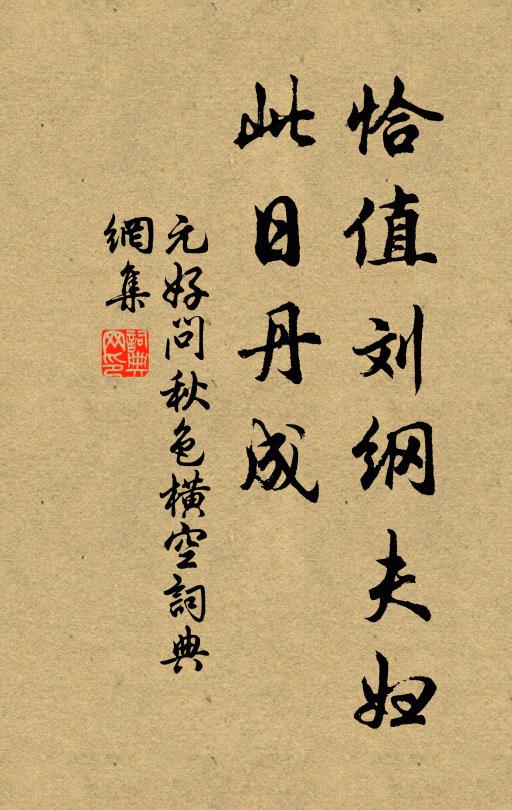 恰值刘纲夫妇
此日丹成
元好问秋色横空詞典
網集
詞典網印